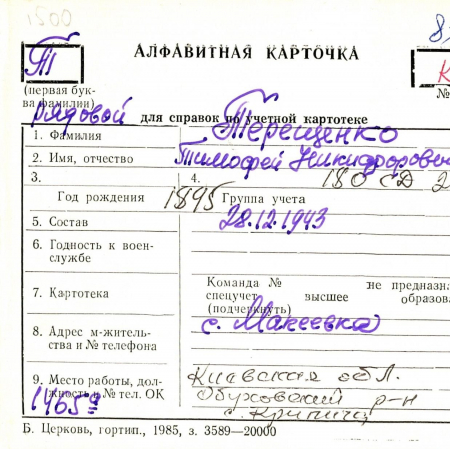 1500
АЛФАВИТНАЯ КАРТОЧКА
Т
(первая бук-
ва фамилии)
№
рядовой для справок по учетной картотеке
1. Фамилия Терещенко
2. Имя, отчество Тимофей Никифорович
3. 4. 180 СД 2
Год рождения 1895 Группа учета
5. Состав 28.12.1943
6. Годность к воен-
службе
7. Картотека Команда № не предназна
спецучет высшее образова
(подчеркнуть)
8. Адрес м-житель-
ства и № телефона с. Макеевка
9. Место работы, дол-
жность и № тел. ОК Киевская обл.
1465 Обуховский р-н
с. Крипица
Б. Церковь, гортип., 1985, з. 3589—20000